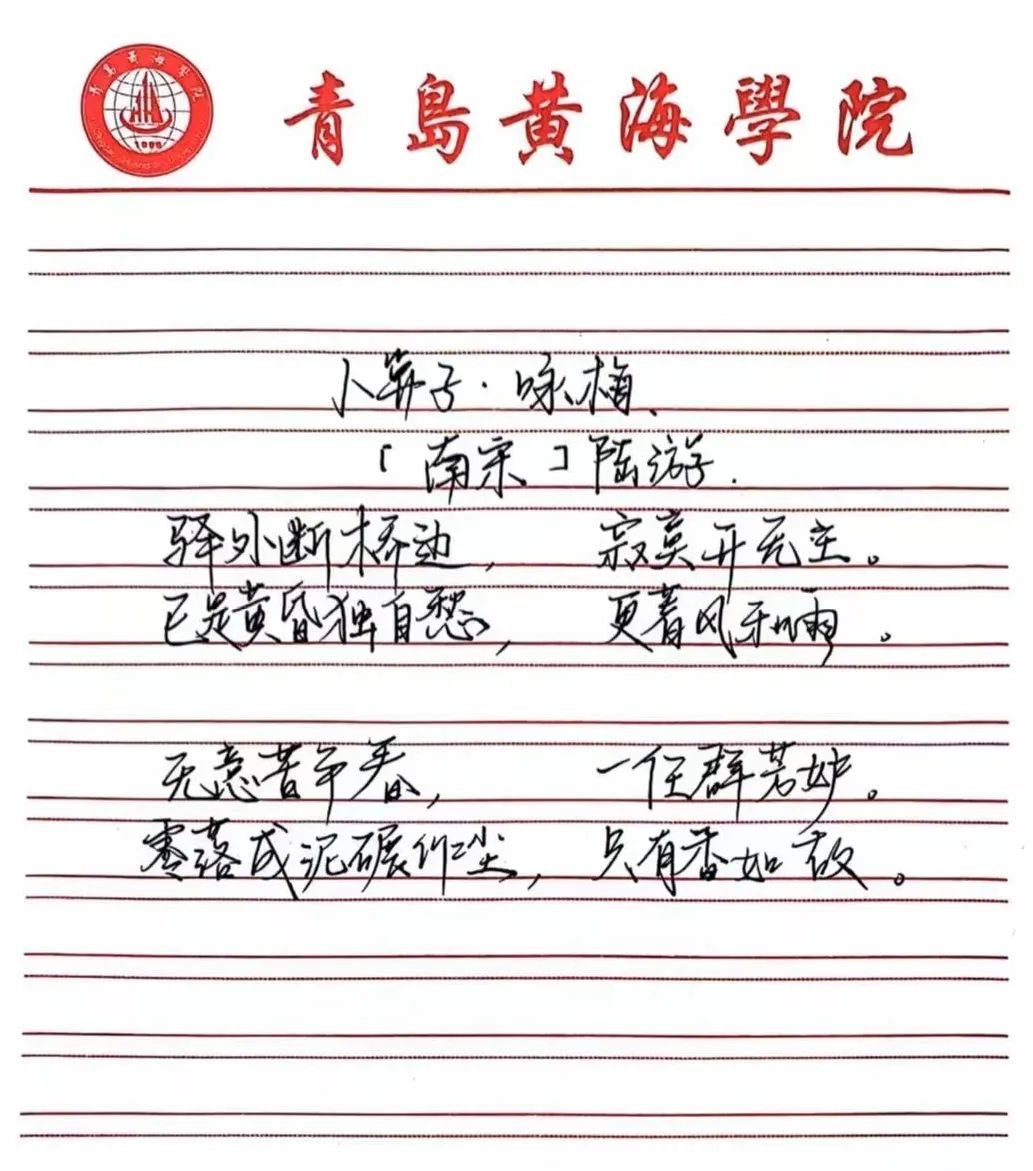 青島黄海學院
青岛黄海学院
1996
卜算子·咏梅、
「南宋」陆游.
驿外断桥边, 寂寞开无主。
已是黄昏独自愁, 更着风和雨。
无意苦争春, 一任群芳妒。
零落成泥碾作尘, 只有香如故。